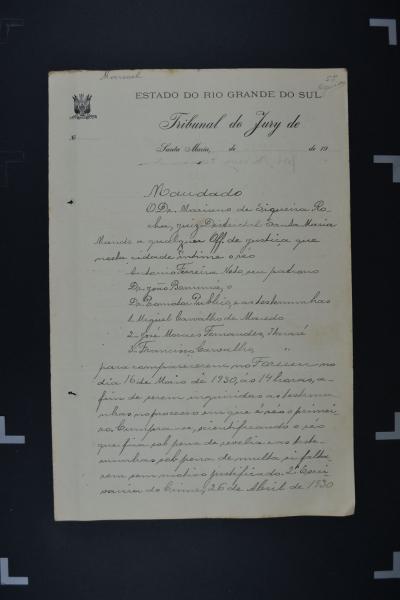 Manoel
57
ESTADO DO RIO GRANDE DO SUL
Tribunal do Jury de
Nº
Santa Maria, de de 19
Mandado
O Dr. Mariano de Siqueira Ro-
cha, juiz Districtal em Sta Maria
Manda a qualquer Off. de justiça que
nesta cidade intime o réo
Antonio Ferreira Neto, seu patrono
Dr. João Bonumá, o
Dr. Promotor Publico, e as testemunhas
1. Miguel Carvalho de Macedo
2. José Moraes Fernandes,
3. Francisco Carvalho, "
para comparecerem no Forum no
dia 16 de Maio de 1930, ás 14 horas, a-
fim de serem inquiridas as testemu-
nhas no processo em que é réo o primei-
ro. Cumpra-se, scientificando o réo
que fica sob pena de revelia e as teste-
munhas sob pena de multa si falta-
rem sem motivo justificado. 2º Escri-
vania do Crime, 26 de Abril de 1930